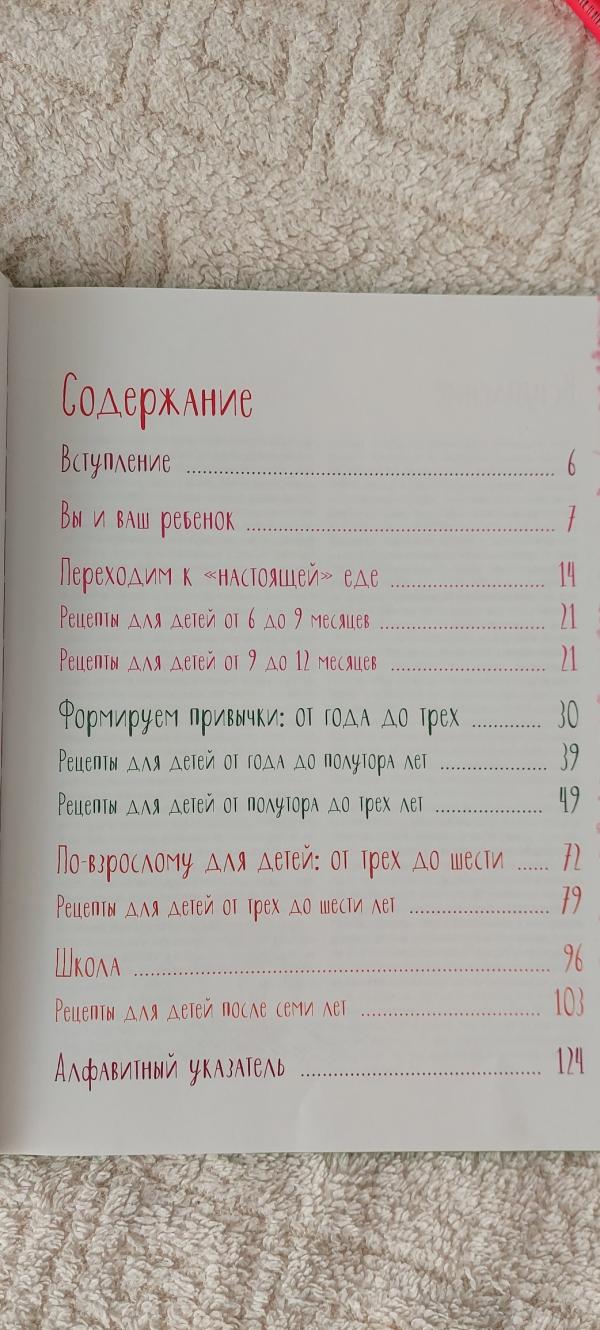 Содержание
Вступление ........ 6
Вы и ваш ребенок ........ 7
Переходим к «настоящей» еде ........ 14
Рецепты для детей от 6 до 9 месяцев ........ 21
Рецепты для детей от 9 до 12 месяцев ........ 21
Формируем привычки: от года до трех ........ 30
Рецепты для детей от года до полутора лет ........ 39
Рецепты для детей от полутора до трех лет ........ 49
По-взрослому для детей: от трех до шести ...... 72
Рецепты для детей от трех до шести лет ........ 79
Школа ........ 96
Рецепты для детей после семи лет ........ 103
Алфавитный указатель ........ 124